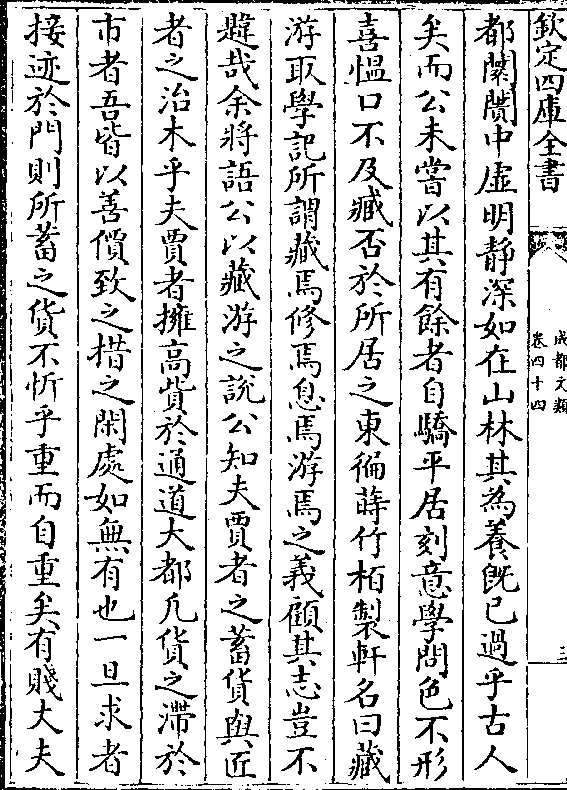 欽定四庫全書
成都文類
卷四十四
三
都闤闠中虛明靜深如在山林其為養既已過乎古人
矣而公未嘗以其有餘者自驕平居刻意學問色不形
喜慍口不及臧否於所居之東徧蒔竹栢製軒名曰藏
游取學記所謂藏焉修焉息焉游焉之義顧其志豈不
韙哉余將語公以藏游之說公知夫賈者之蓄貨與匠
者之治木乎夫賈者擁高貲於通道大都凡貨之滯於
市者吾皆以善價致之措之閑處如無有也一旦求者
接迹於門則所蓄之貨不忻乎重而自重矣有賤大夫